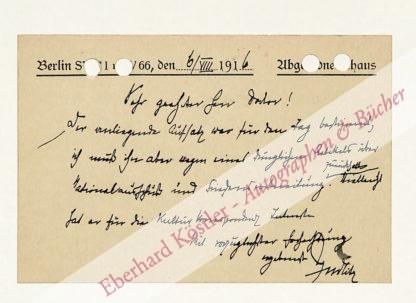 Berlin S 11 /66, den 6/VIII. 1916 Abg one haus
Sehr geehrter Herr Doktor!
Der anliegende Aufsatz war für den Tag bestimmt,
ich muß ihn aber wegen eines dringlichen Artikels über
Nationalausschuß und zurück
Vielleicht
hat er für die Kultur Korrespondenz Interesse
Mit vorzüglichster Hochachtung
ergebenst
Eberhard Köstler - Autographen & Bücher